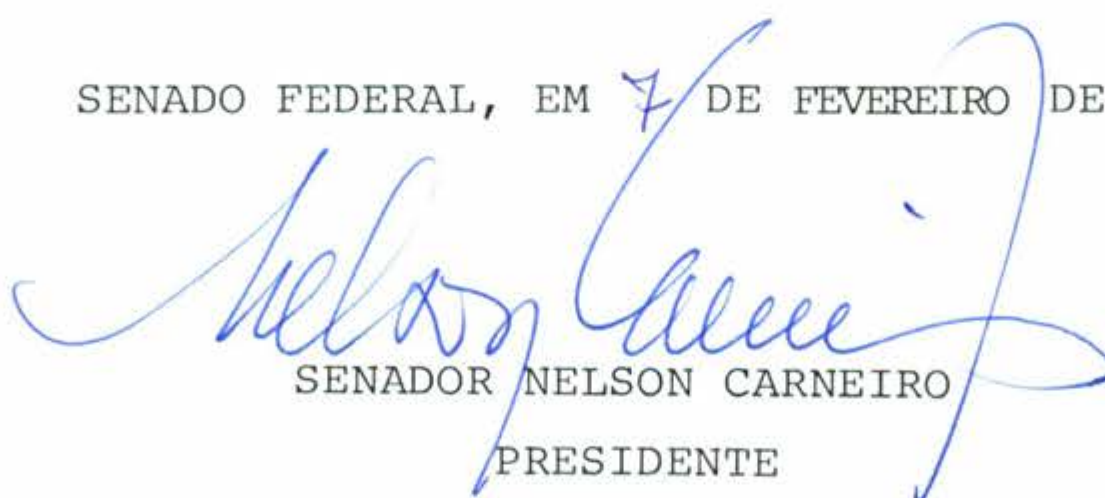 SENADO FEDERAL, EM 7 DE FEVEREIRO DE
Nelson Carneiro
SENADOR NELSON CARNEIRO
PRESIDENTE